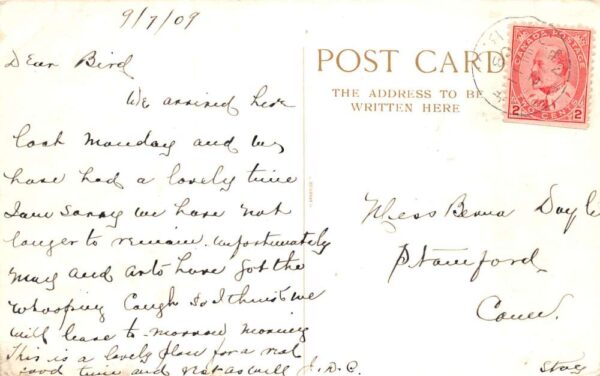 9/7/09
Dear Bird
We arrived here
last Monday and we
have had a lovely time
I am sorry we have not
longer to remain. Unfortunately
May and Arto have got the
whooping Cough so I think we
will leave to-morrow morning
This is a lovely place for a rest
good time and not as well J.D.C.
POST CARD
THE ADDRESS TO BE
WRITTEN HERE
CANADA POSTAGE
2 TWO CENTS 2
Miss Berna Doyle
Stamford
Conn.